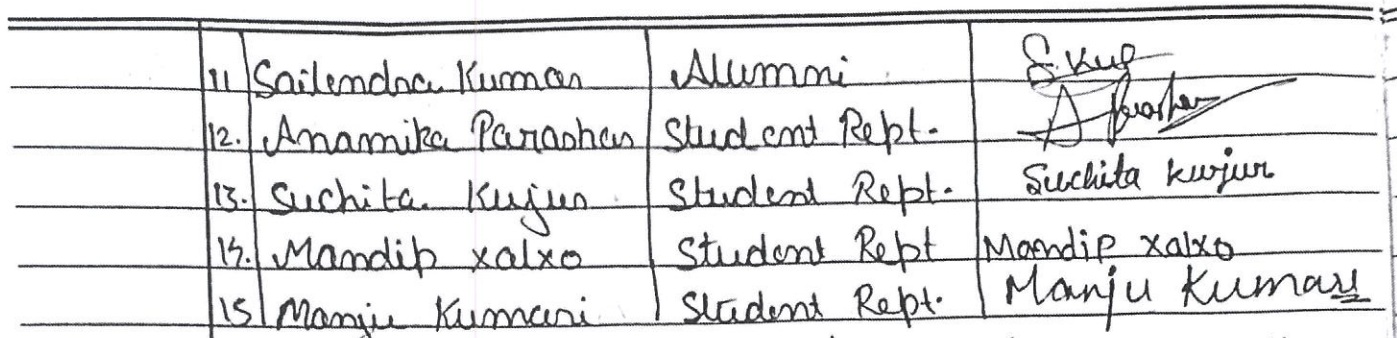 11 Sailendra Kumar Alumni S. Kuj
12. Anamika Parashar Student Rept. A Parashar
13. Suchita Kujur Student Rept. Suchita kurjur
14. Mandip xalxo Student Rept Mandip xalxo
15 Manju Kumari Student Rept. Manju Kumari